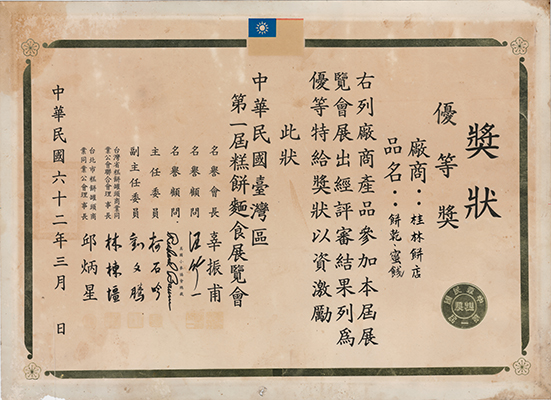 獎狀
優等獎
廠商：桂林餅店
品名：餅乾、蜜餞
右列廠商產品參加本屆展
覽會展出經評審結果列為
優等特給獎狀以資激勵
此狀
中華民國臺灣區
第一屆糕餅麵食展覽會
名譽會長 辜振甫
名譽顧問
名譽顧問
主任委員
副主任委員
台灣省糕餅罐頭商業同
業公會聯合會理事長
台北市糕餅罐頭商
業同業公會理事長 邱炳星
中華民國六十二年三月 日